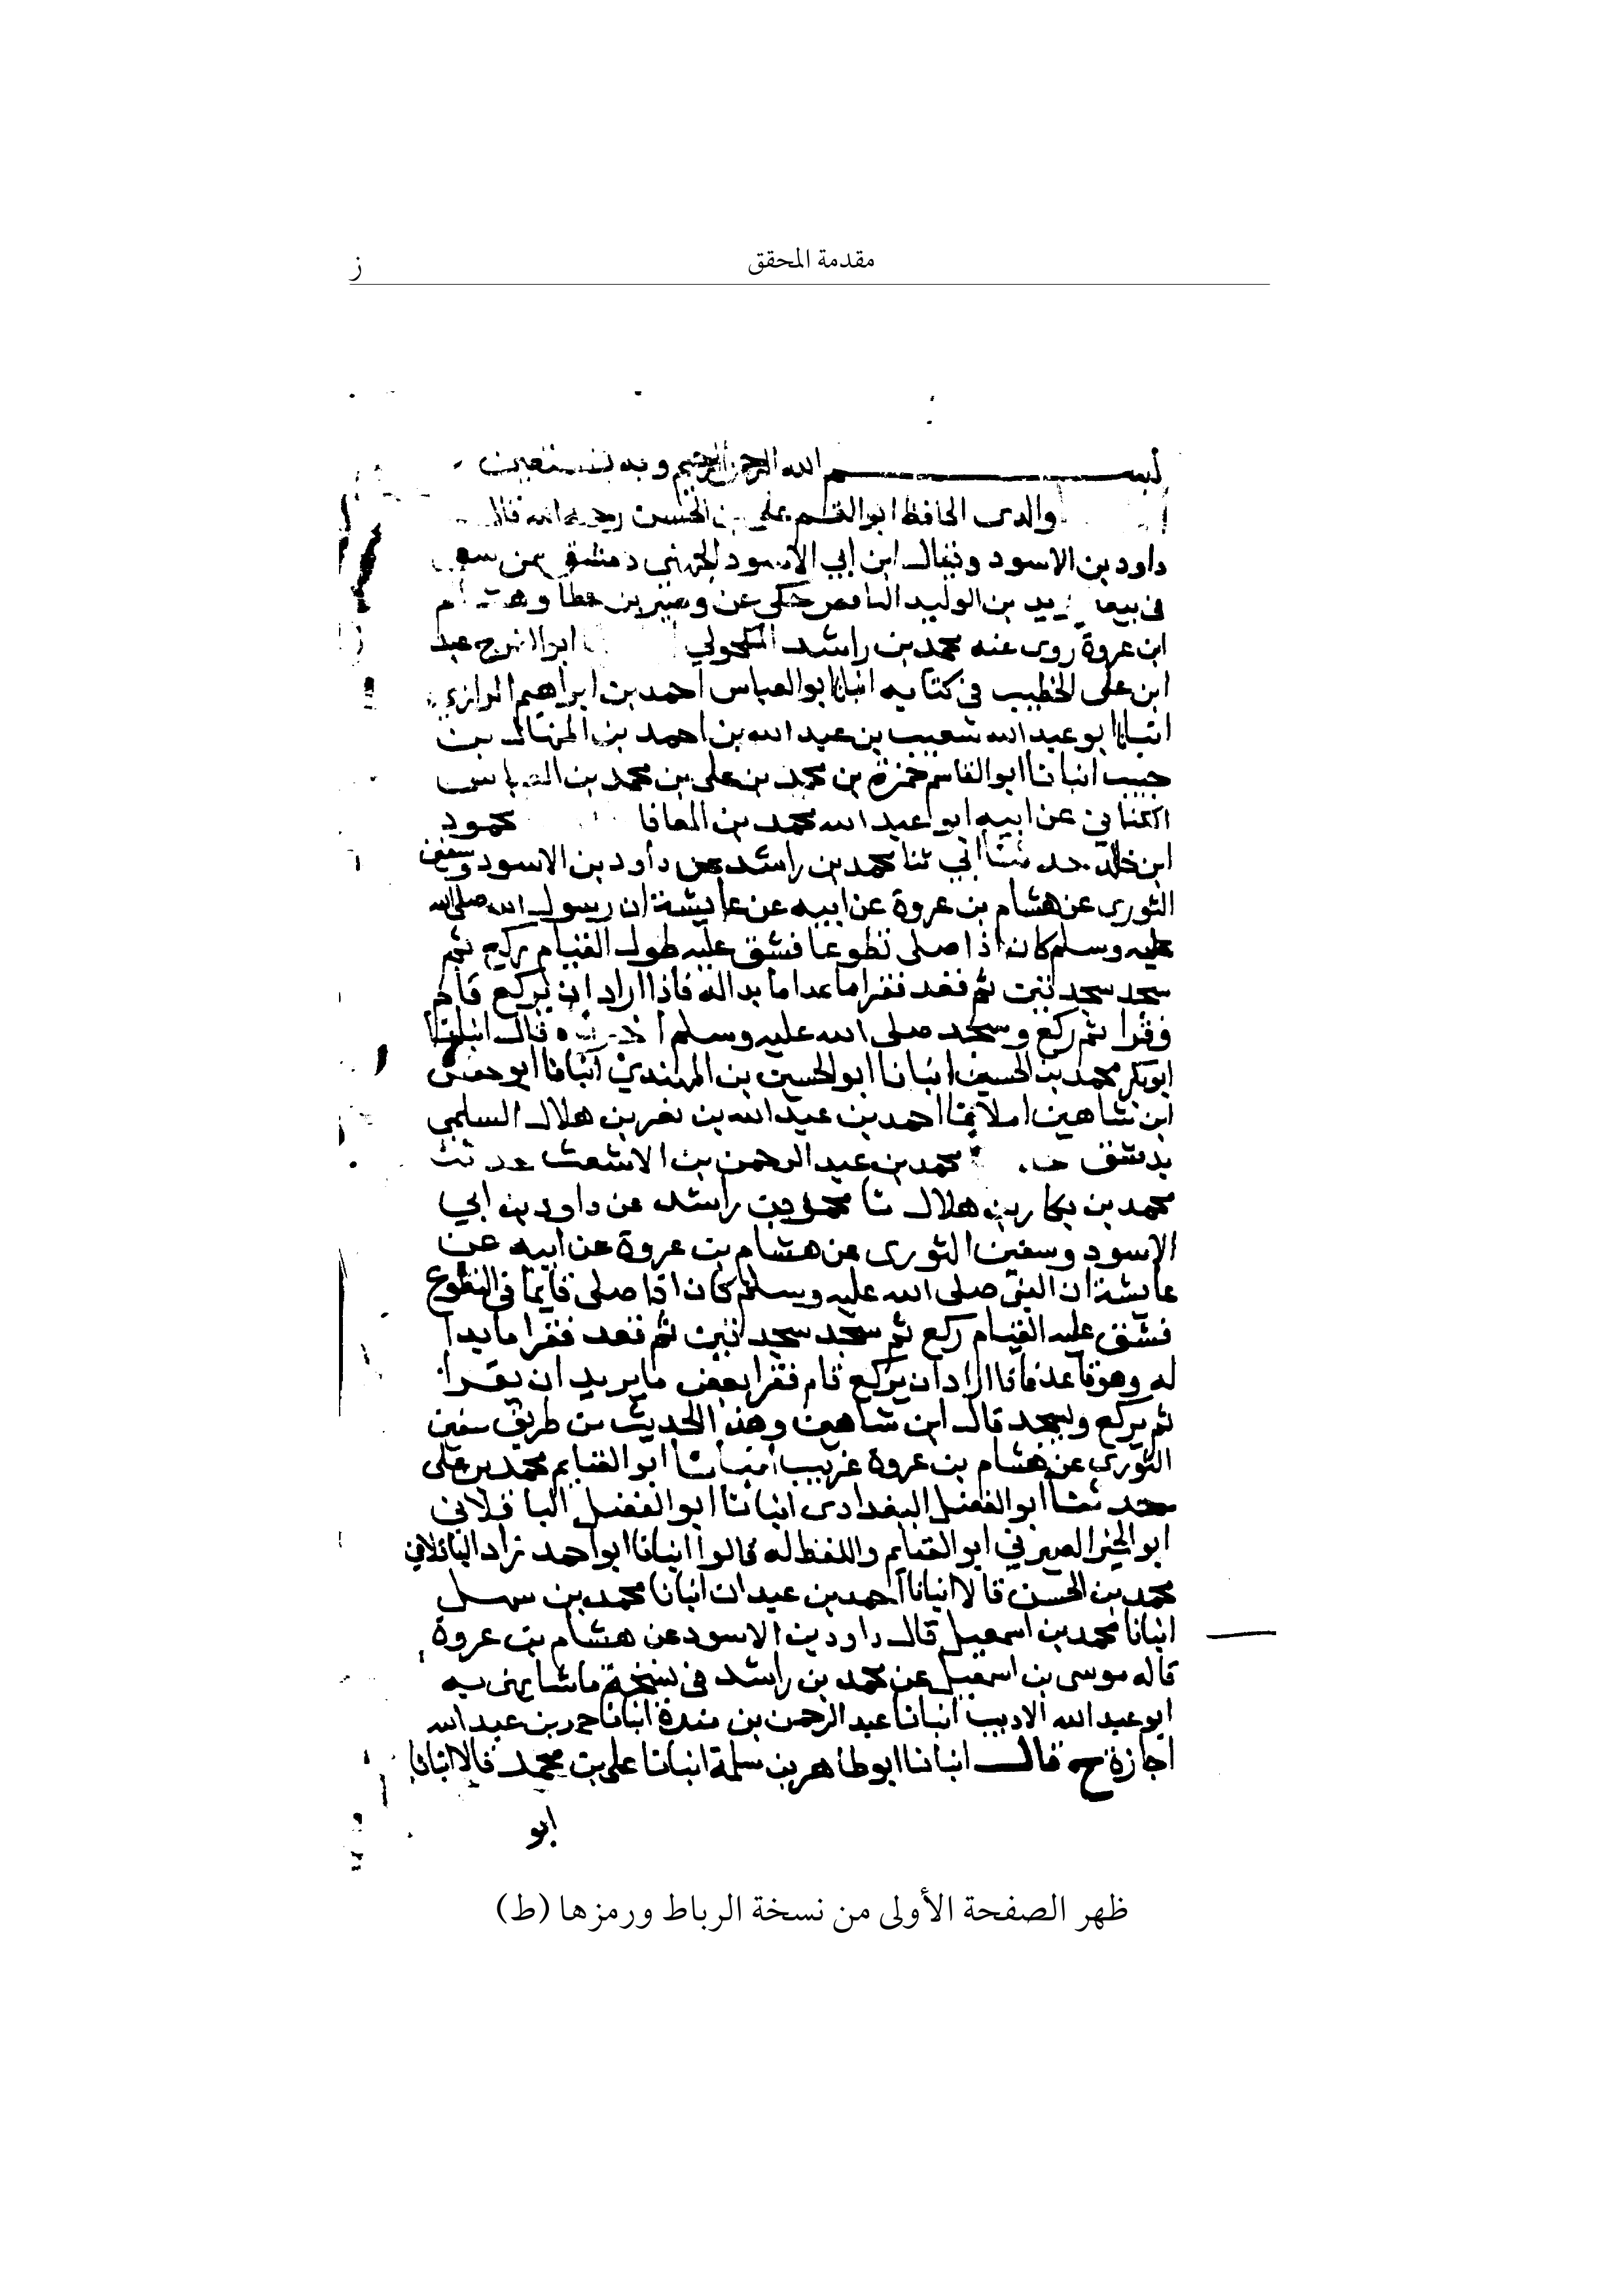 مقدمة المحقق
ز
بسم الله الرحمن الرحيم وبه نستعين
والدى الحافظ ابو القسم على بن الحسن رحمه الله قال
داود بن الاسود ويقال ابن ابي الاسود الجهني دمشقي ممن سعى
فى بيعة يزيد بن الوليد الناقص حكى عن وضين بن عطا وهشام
ابن عروة روى عنه محمد بن راشد المكحولي ابو الفرج عبد
ابن على الخطيب في كتابه انبانا ابو العباس احمد بن ابراهيم الرازي
انبانا ابو عبد الله شعيب بن عبد الله بن احمد بن المنهال بن
حبيب انبانا ابو القاسم حمزة بن محمد بن على بن محمد بن العباس
الكناني عن ابيه ابو عبد الله محمد بن المعافا محمود
ابن خالد حدثنا ابي ثنا محمد بن راشد عن داود بن الاسود وسفين
الثورى عن هشام بن عروة عن ابيه عن عايشة ان رسول الله صلى الله
عليه وسلم كان اذا صلى تطوعا فشق عليه طول القيام ركع ثم
سجد سجدتين ثم قعد فقرا ما بدا له فاذا اراد ان يركع قام
وقرا ثم ركع وسجد صلى الله عليه وسلم قال انبانا
ابو بكر محمد بن الحسين انبانا ابو الحسين بن المهتدي انبانا ابو حفص
ابن شاهين املا ثنا احمد بن عبد الله بن نصر بن هلال السلمي
بدمشق محمد بن عبد الرحمن بن الاشعث حدثنا
محمد بن بكار بن هلال ثنا محمد بن راشد عن داود بن ابي
الاسود وسفين الثورى عن هشام بن عروة عن ابيه عن
عايشة ان النبى صلى الله عليه وسلم كان اذا صلى قايما فى التطوع
فشق عليه القيام ركع ثم سجد سجدتين ثم قعد فقرا ما بدا
له وهو قاعد فاذا اراد ان يركع قام فقرا بعض ما يريد ان يقرا
ثم يركع ويسجد قال ابن شاهين وهذا الحديث من طريق سفين
الثورى عن هشام بن عروة غريب انبانا ابو الغنايم محمد بن على
حدثنا ابو الفضل البغدادى انبانا ابو الفضل الباقلاني
ابو الحسين الصيرفي ابو الغنايم واللفظ له قالوا انبانا ابو احمد زاد الباقلاني
محمد بن الحسن قالا انبانا احمد بن عبدان انبانا محمد بن سهل
انبانا محمد بن اسمعيل قال داود بن الاسود عن هشام بن عروة
قاله موسى بن اسمعيل عن محمد بن راشد فى نسخة ما شافهنى به
ابو عبد الله الاديب انبانا عبد الرحمن بن مندة انبانا حمد بن عبد الله
اجازة ح قال انبانا ابو طاهر بن سلمة انبانا على بن محمد قالا انبانا
ابو
ظهر الصفحة الأولى من نسخة الرباط ورمزها (ط)